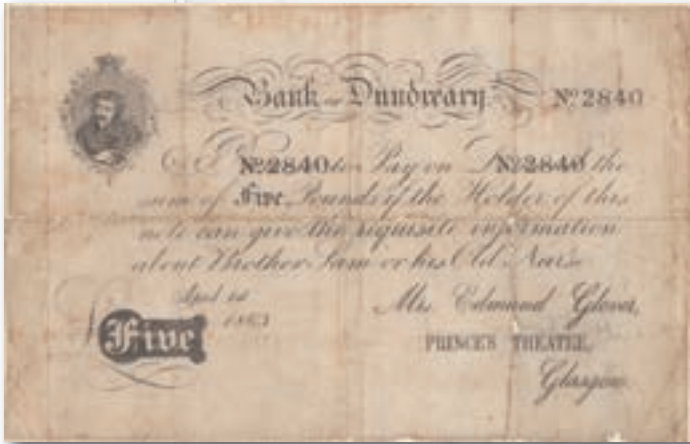 Bank of Dundreary No 2840
I No 2840 to Pay on No 2840 the
sum of Five Pounds if the Holder of this
note can give the requisite information
about Brother Sam or his Old Nurse
April 1st
1863
Mrs. Edmund Glover,
Five
PRINCE'S THEATRE,
Glasgow